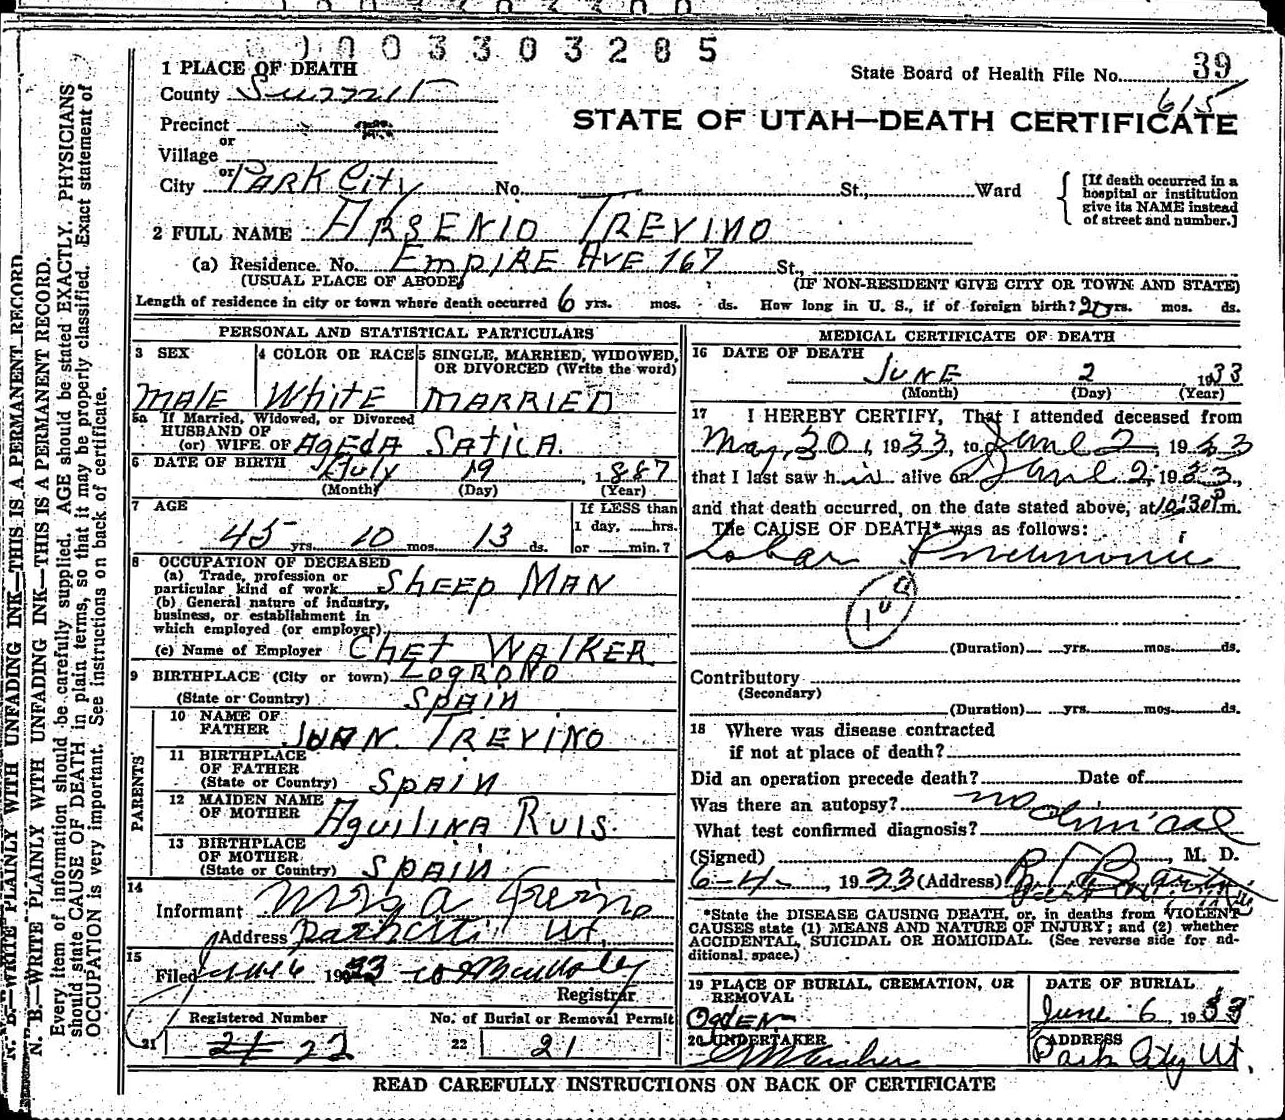 0003303285
State Board of Health File No. 39
615
1 PLACE OF DEATH
County Summit
STATE OF UTAH—DEATH CERTIFICATE
Precinct
or
Village
or
City PARK City No. St., Ward
[If death occurred in a hospital or institution give its NAME instead of street and number.]
2 FULL NAME ARSENIO TREVINO
(a) Residence. No. EmpIRE AVE 167 St.,
(USUAL PLACE OF ABODE) (IF NON-RESIDENT GIVE CITY OR TOWN AND STATE)
Length of residence in city or town where death occurred 6 yrs. mos. ds. How long in U. S., if of foreign birth? 20 yrs. mos. ds.
PERSONAL AND STATISTICAL PARTICULARS
3 SEX
MALE
4 COLOR OR RACE
White
5 SINGLE, MARRIED, WIDOWED, OR DIVORCED (Write the word)
MARRIED
5a If Married, Widowed, or Divorced
HUSBAND OF
(or) WIFE OF AGEDA SATICA.
6 DATE OF BIRTH July 19, 1887
(Month) (Day) (Year)
7 AGE
45 yrs. 10 mos. 13 ds.
If LESS than
1 day, hrs.
or min.?
8 OCCUPATION OF DECEASED
(a) Trade, profession or
particular kind of work SHEEP MAN
(b) General nature of industry,
business, or establishment in
which employed (or employer)
(c) Name of Employer CHET WALKER
9 BIRTHPLACE (City or town) LOGRONO
(State or Country) SPAIN
PARENTS
10 NAME OF
FATHER JUAN. TREVINO
11 BIRTHPLACE
OF FATHER
(State or Country) SPAIN
12 MAIDEN NAME
OF MOTHER AGUILINA RUIS.
13 BIRTHPLACE
OF MOTHER
(State or Country) SPAIN
14
Informant Mrs A
Address Park City Ut.
15
Filed June 6 1933
Registrar
Registered Number
21 22
No. of Burial or Removal Permit
22 21
MEDICAL CERTIFICATE OF DEATH
16 DATE OF DEATH
JUNE 2 1933
(Month) (Day) (Year)
17 I HEREBY CERTIFY, That I attended deceased from
May, 30, 1933, to June 2, 1933
that I last saw him alive on June 2, 1933,
and that death occurred, on the date stated above, at 10:30 P m.
The CAUSE OF DEATH* was as follows:
Lobar Pneumonia
(Duration) yrs. mos. ds.
Contributory
(Secondary)
(Duration) yrs. mos. ds.
18 Where was disease contracted
if not at place of death?
Did an operation precede death? Date of
Was there an autopsy? no
What test confirmed diagnosis? clinical
(Signed) , M. D.
6-4-, 1933 (Address)
*State the DISEASE CAUSING DEATH, or, in deaths from VIOLENT
CAUSES state (1) MEANS AND NATURE OF INJURY; and (2) whether
ACCIDENTAL, SUICIDAL OR HOMICIDAL. (See reverse side for additional space.)
19 PLACE OF BURIAL, CREMATION, OR
REMOVAL
OGDEN
DATE OF BURIAL
June 6, 1933
20 UNDERTAKER
ADDRESS
Park City Ut.
READ CAREFULLY INSTRUCTIONS ON BACK OF CERTIFICATE
N. B.—WRITE PLAINLY WITH UNFADING INK—THIS IS A PERMANENT RECORD.
N. B.—WRITE PLAINLY WITH UNFADING INK—THIS IS A PERMANENT RECORD.
Every item of information should be carefully supplied. AGE should be stated EXACTLY. PHYSICIANS
should state CAUSE OF DEATH in plain terms, so that it may be properly classified. Exact statement of
OCCUPATION is very important. See instructions on back of certificate.